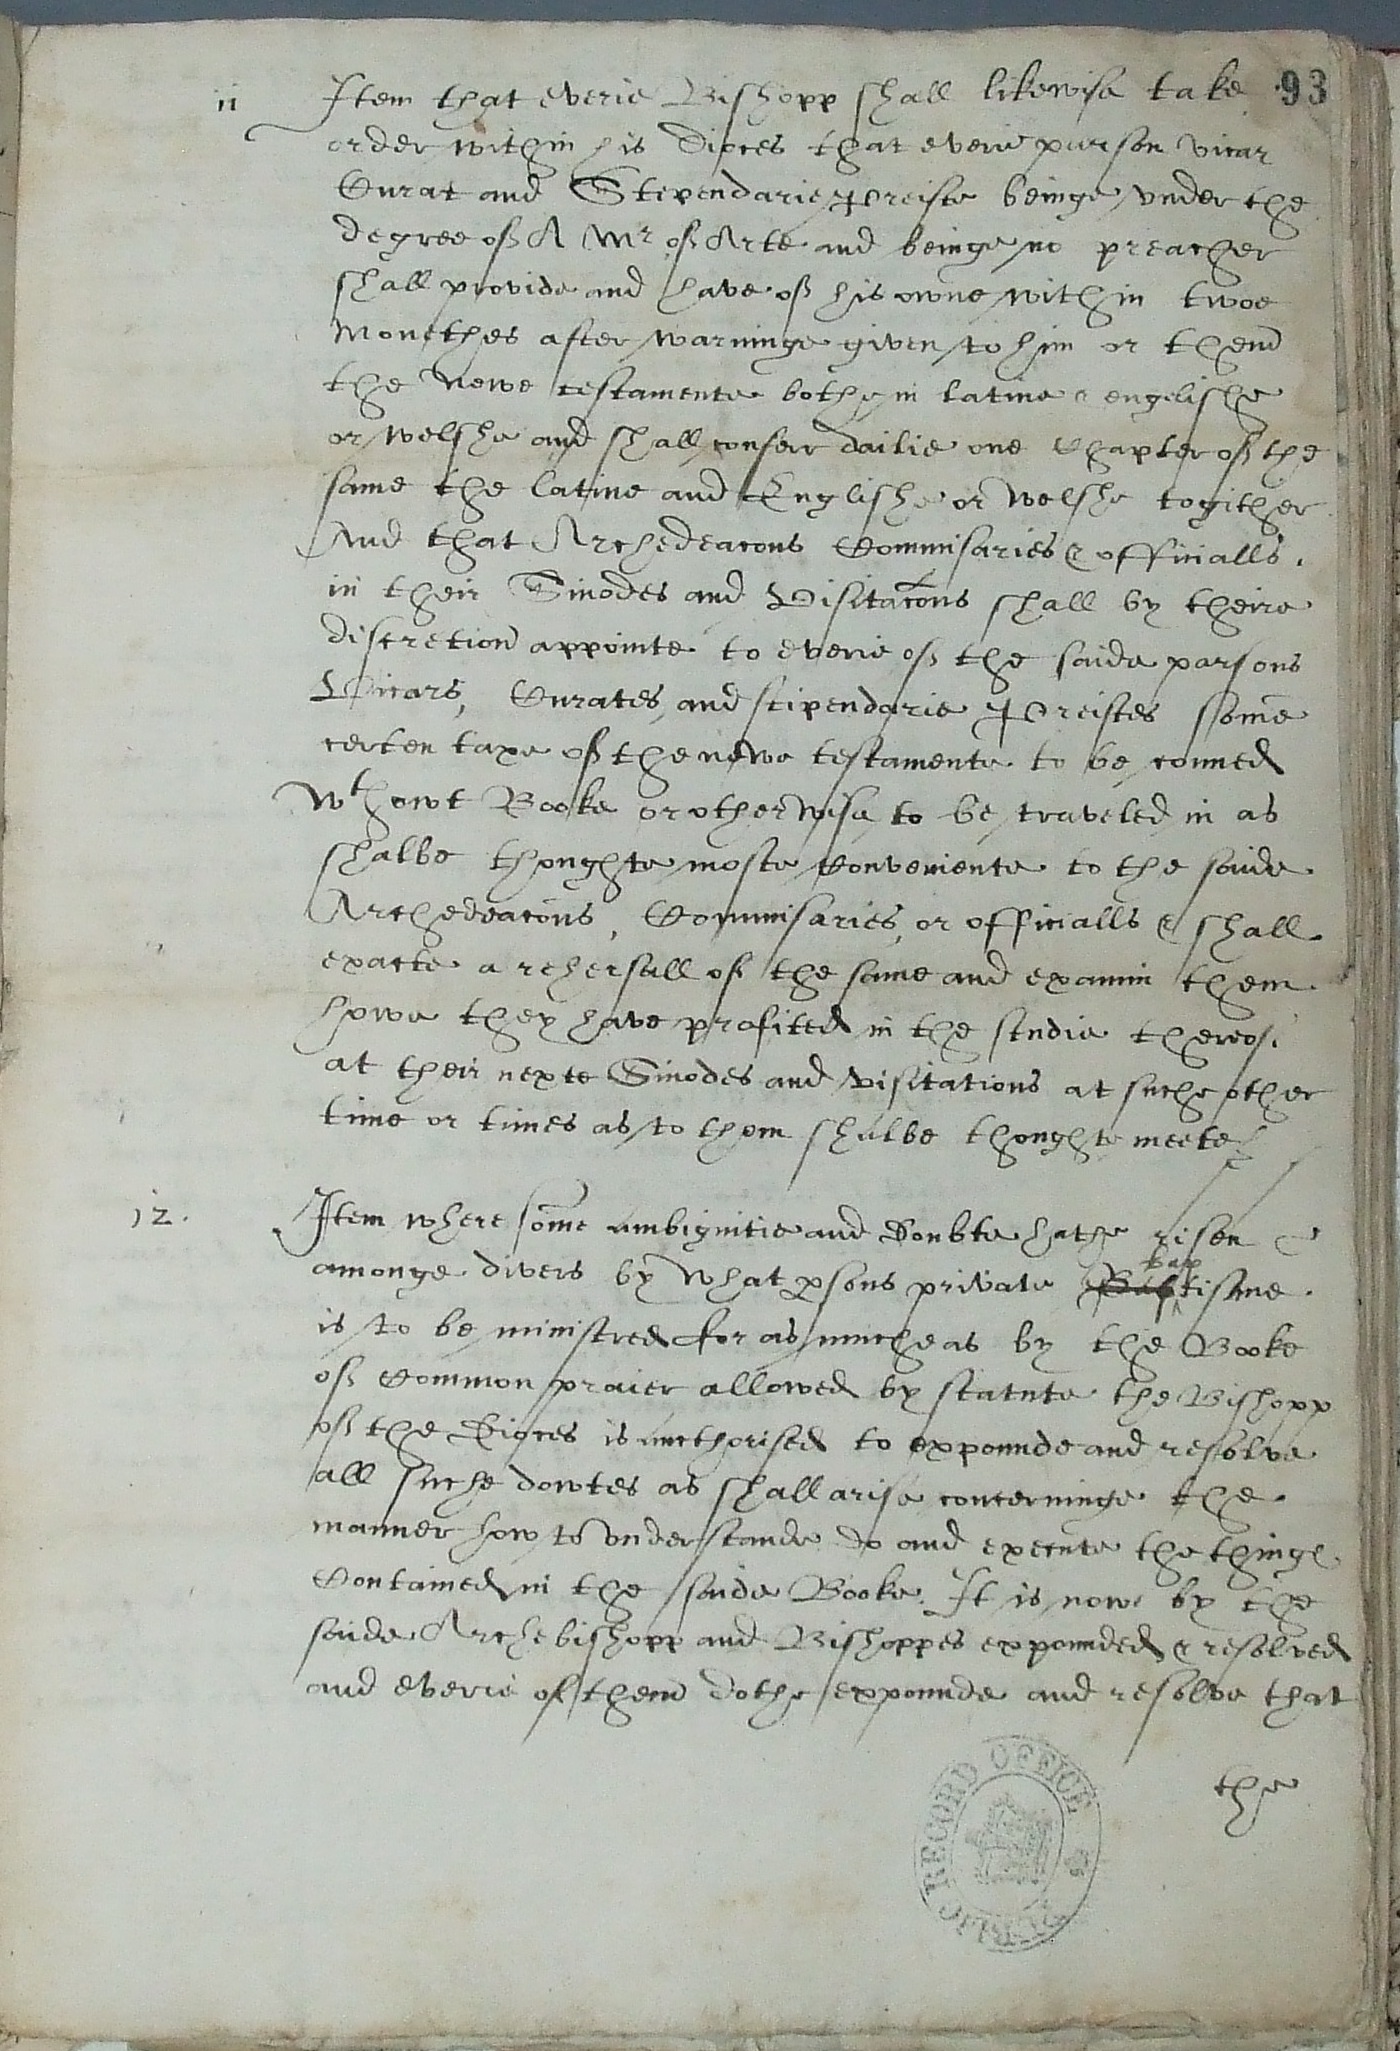 93
ii Item that everie Bishopp shall likewise take
order within his Dioces that everie parson vicar
Curat and Stependarie Preiste beinge under the
degree of A Mr of Arte and beinge no preacher
shall provide and have of his owne within twoe
Monethes after warninge given to him or them
the Newe testamente bothe in latine & engelishe
or welshe and shall conferr dailie one Chapter of the
same the latine and Englishe or welshe togither
And that Archedeacons Commisaries & officialls.
in their Sinodes and Visitacons shall by theire
discretion appointe to everie of the saide parsons
Vicars, Curates, and stipendarie Preistes some
certen taxe of the newe testamente to be conned
wthowt Booke or otherwise to be traveled in as
shalbe thoughte moste Conveniente to the saide
Archedeacons, Commisaries, or officialls & shall
exacte a rehersall of the same and examin them
howe they have profited in the studie thereof.
at their nexte Sinodes and visitations at suche other
time or times as to them shalbe thoughte meete
12. Item where some ambiguitie and Doubte hathe risen
amonge divers by what psons private Baptisme.
is to be ministred for as muche as by the Booke
of Common praier allowed by statute the Bishopp
of the Dioces is aucthorised to expounde and resolve
all suche dowtes as shall arise concerninge the
manner how to understande do and execute the thinges
Contained in the saide Booke. It is nowe by the
saide Archebishopp and Bishoppes expounded & resolved
and everie of them dothe expounde and resolve that
the
PUBLIC RECORD OFFICE